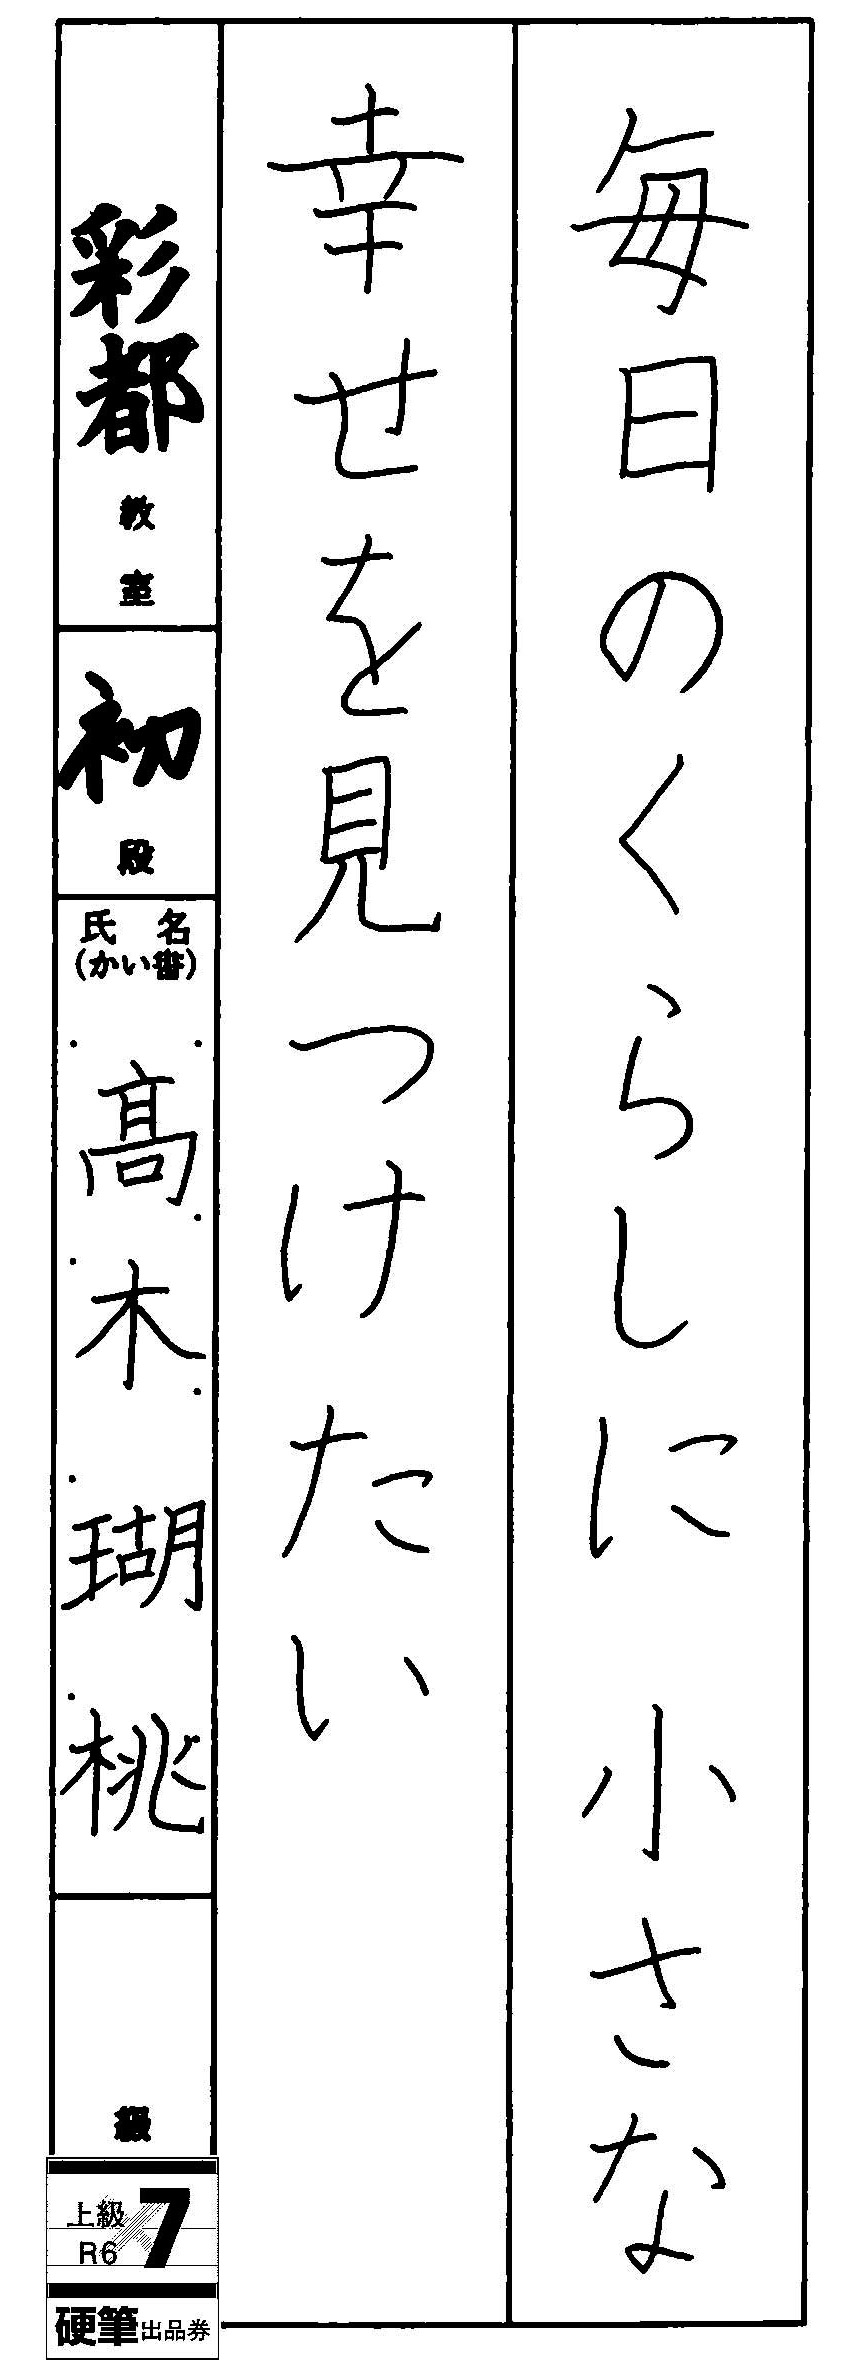 毎日のくらしに 小さな
幸せを見つけたい
彩都教室
初段
氏名
(かい書)
髙木瑚桃
級
上級
R6
7
硬筆出品券